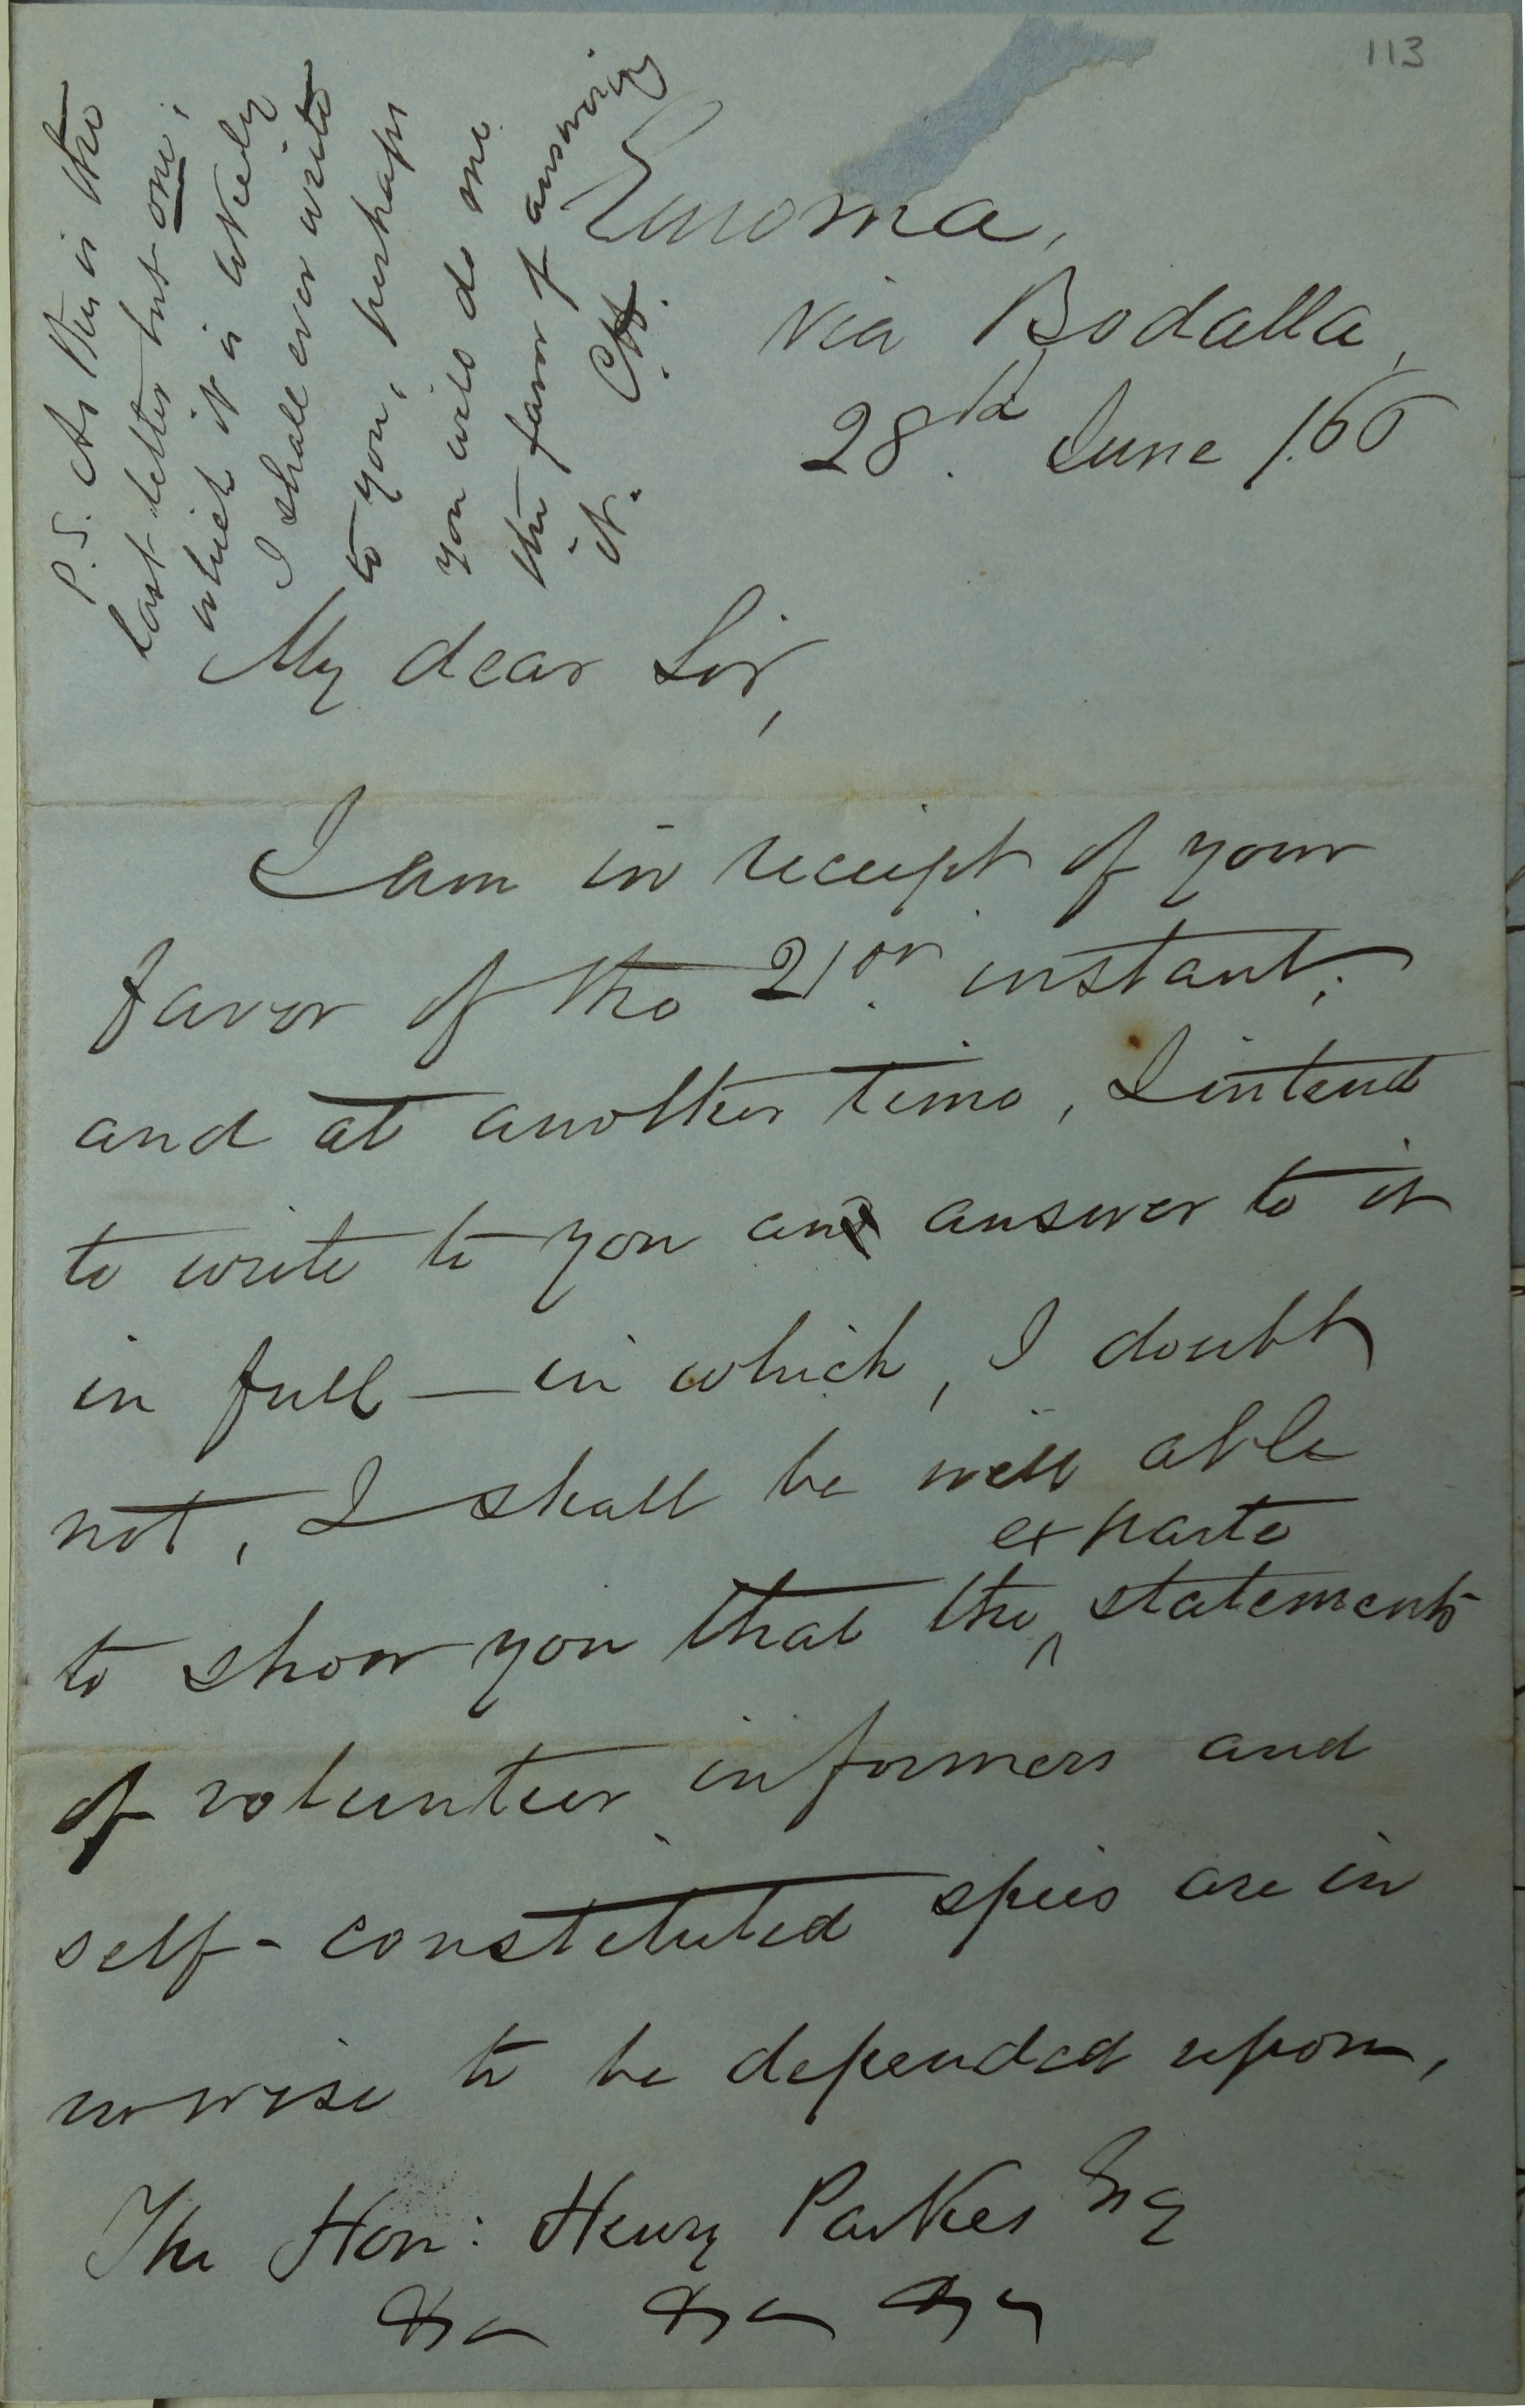 113
Euroma,
via Bodalla,
28th June /66
My dear Sir,
I am in receipt of your
favor of the 21st instant;
and at another time, I intend
to write to you an answer to it
in full — in which, I doubt
not, I shall be well able
to show you that the ex parte statements
of volunteer informers and
self-constituted spies are in
nowise to be depended upon,
The Hon: Henry Parkes Esq
&c &c &c
P.S. As this is the
last letter but one,
which it is likely
I shall ever write
to you, perhaps
you will do me
the favor of answering
it. CH.